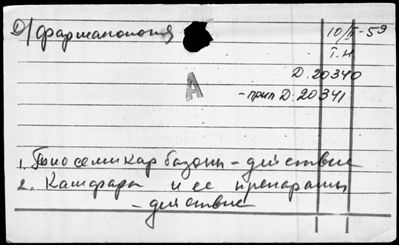 D/фармакология
10/II-59
Т.Н
D.20340
A
-прил D.20341
1. Тиосемикарбазоны - действие
2. Камфара и ее препараты
- действие